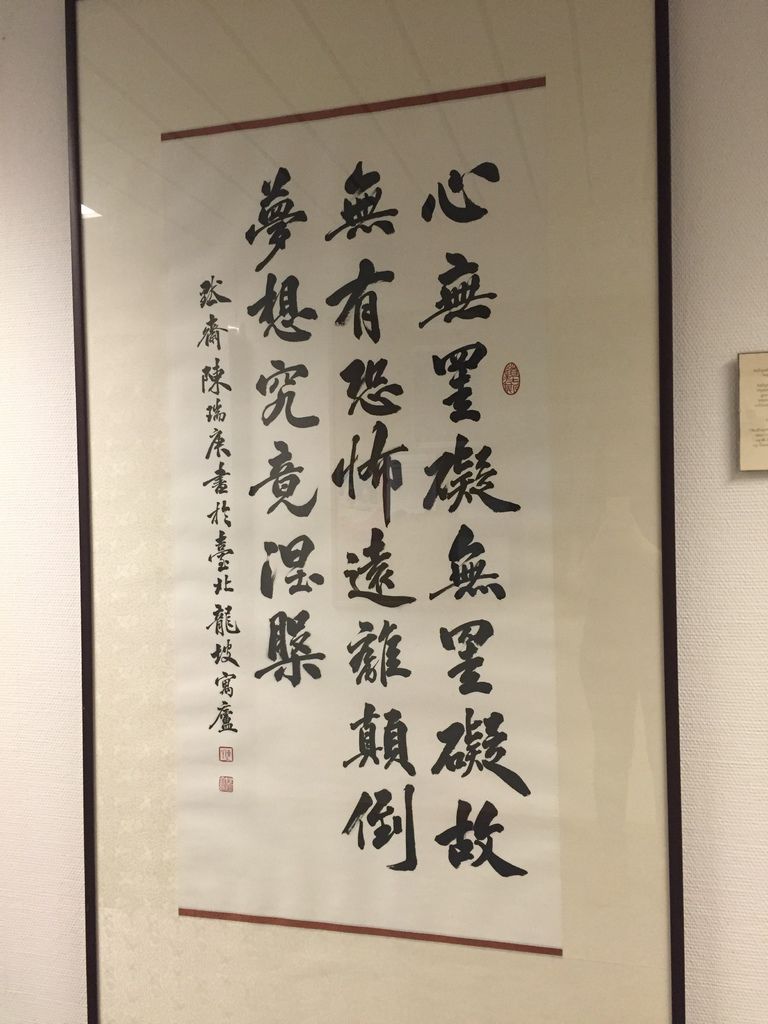 心無罣礙無罣礙故
無有恐怖遠離顛倒
夢想究竟涅槃
齋陳瑞庚書於臺北龍坡寓廬